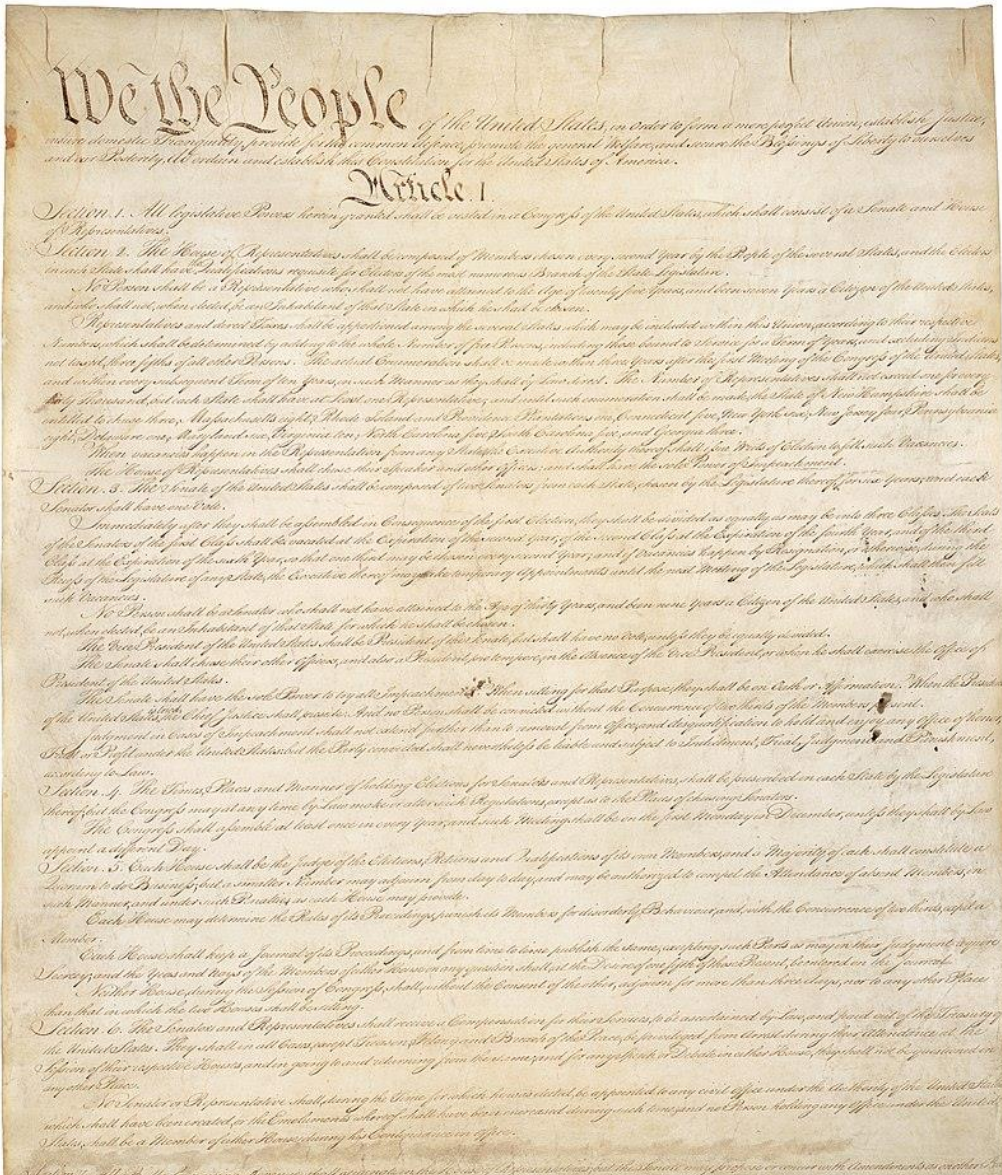 We the People of the United States, in Order to form a more perfect Union, establish Justice,
insure domestic Tranquility, provide for the common defence, promote the general Welfare, and secure the Blessings of Liberty to ourselves
and our Posterity, do ordain and establish this Constitution for the United States of America.
Article. I.
Section. 1. All legislative Powers herein granted shall be vested in a Congress of the United States, which shall consist of a Senate and House
of Representatives.
Section. 2. The House of Representatives shall be composed of Members chosen every second Year by the People of the several States, and the Electors
in each State shall have the Qualifications requisite for Electors of the most numerous Branch of the State Legislature.
No Person shall be a Representative who shall not have attained to the Age of twenty five Years, and been seven Years a Citizen of the United States,
and who shall not, when elected, be an Inhabitant of that State in which he shall be chosen.
Representatives and direct Taxes shall be apportioned among the several States which may be included within this Union, according to their respective
Numbers, which shall be determined by adding to the whole Number of free Persons, including those bound to Service for a Term of Years, and excluding Indians
not taxed, three fifths of all other Persons. The actual Enumeration shall be made within three Years after the first Meeting of the Congress of the United States,
and within every subsequent Term of ten Years, in such Manner as they shall by Law direct. The Number of Representatives shall not exceed one for every
thirty Thousand, but each State shall have at Least one Representative; and until such enumeration shall be made, the State of New Hampshire shall be
entitled to chuse three, Massachusetts eight, Rhode Island and Providence Plantations one, Connecticut five, New York six, New Jersey four, Pennsylvania
eight, Delaware one, Maryland six, Virginia ten, North Carolina five, South Carolina five, and Georgia three.
When vacancies happen in the Representation from any State, the Executive Authority thereof shall issue Writs of Election to fill such Vacancies.
The House of Representatives shall chuse their Speaker and other Officers; and shall have the sole Power of Impeachment.
Section. 3. The Senate of the United States shall be composed of two Senators from each State, chosen by the Legislature thereof, for six Years; and each
Senator shall have one Vote.
Immediately after they shall be assembled in Consequence of the first Election, they shall be divided as equally as may be into three Classes. The Seats
of the Senators of the first Class shall be vacated at the Expiration of the second Year, of the second Class at the Expiration of the fourth Year, and of the third
Class at the Expiration of the sixth Year, so that one third may be chosen every second Year; and if Vacancies happen by Resignation, or otherwise, during the
Recess of the Legislature of any State, the Executive thereof may make temporary Appointments until the next Meeting of the Legislature, which shall then fill
such Vacancies.
No Person shall be a Senator who shall not have attained to the Age of thirty Years, and been nine Years a Citizen of the United States, and who shall
not, when elected, be an Inhabitant of that State for which he shall be chosen.
The Vice President of the United States shall be President of the Senate, but shall have no Vote, unless they be equally divided.
The Senate shall chuse their other Officers, and also a President pro tempore, in the Absence of the Vice President, or when he shall exercise the Office of
President of the United States.
The Senate shall have the sole Power to try all Impeachments. When sitting for that Purpose, they shall be on Oath or Affirmation. When the President
of the United States is tried, the Chief Justice shall preside: And no Person shall be convicted without the Concurrence of two thirds of the Members present.
Judgment in Cases of Impeachment shall not extend further than to removal from Office, and disqualification to hold and enjoy any Office of honor,
Trust or Profit under the United States: but the Party convicted shall nevertheless be liable and subject to Indictment, Trial, Judgment and Punishment,
according to Law.
Section. 4. The Times, Places and Manner of holding Elections for Senators and Representatives, shall be prescribed in each State by the Legislature
thereof; but the Congress may at any time by Law make or alter such Regulations, except as to the Places of chusing Senators.
The Congress shall assemble at least once in every Year, and such Meeting shall be on the first Monday in December, unless they shall by Law
appoint a different Day.
Section. 5. Each House shall be the Judge of the Elections, Returns and Qualifications of its own Members, and a Majority of each shall constitute a
Quorum to do Business; but a smaller Number may adjourn from day to day, and may be authorized to compel the Attendance of absent Members, in
such Manner, and under such Penalties as each House may provide.
Each House may determine the Rules of its Proceedings, punish its Members for disorderly Behaviour, and, with the Concurrence of two thirds, expel a
Member.
Each House shall keep a Journal of its Proceedings, and from time to time publish the same, excepting such Parts as may in their Judgment require
Secrecy; and the Yeas and Nays of the Members of either House on any question shall, at the Desire of one fifth of those Present, be entered on the Journal.
Neither House, during the Session of Congress, shall, without the Consent of the other, adjourn for more than three days, nor to any other Place
than that in which the two Houses shall be sitting.
Section. 6. The Senators and Representatives shall receive a Compensation for their Services, to be ascertained by Law, and paid out of the Treasury of
the United States. They shall in all Cases, except Treason, Felony and Breach of the Peace, be privileged from Arrest during their Attendance at the
Session of their respective Houses, and in going to and returning from the same; and for any Speech or Debate in either House, they shall not be questioned in
any other Place.
No Senator or Representative shall, during the Time for which he was elected, be appointed to any civil Office under the Authority of the United States,
which shall have been created, or the Emoluments whereof shall have been encreased during such time; and no Person holding any Office under the United
States, shall be a Member of either House during his Continuance in Office.
the House of Representatives; but the Senate may propose or concur with Amendments as on other